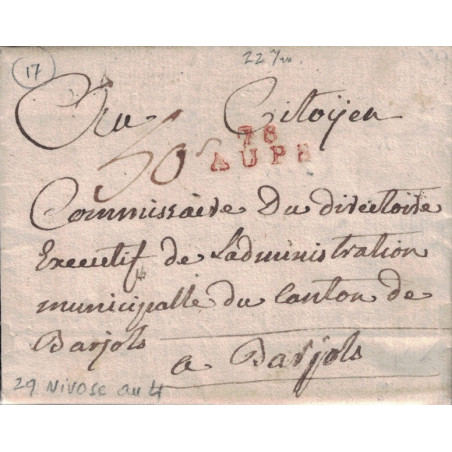 17
22 
Au Citoyen
50s
78
AUPS
Commissaire Du directoire
Executif de L'administration
municipalle du Canton de
Barjols
a Barjols
29 Nivose an 4